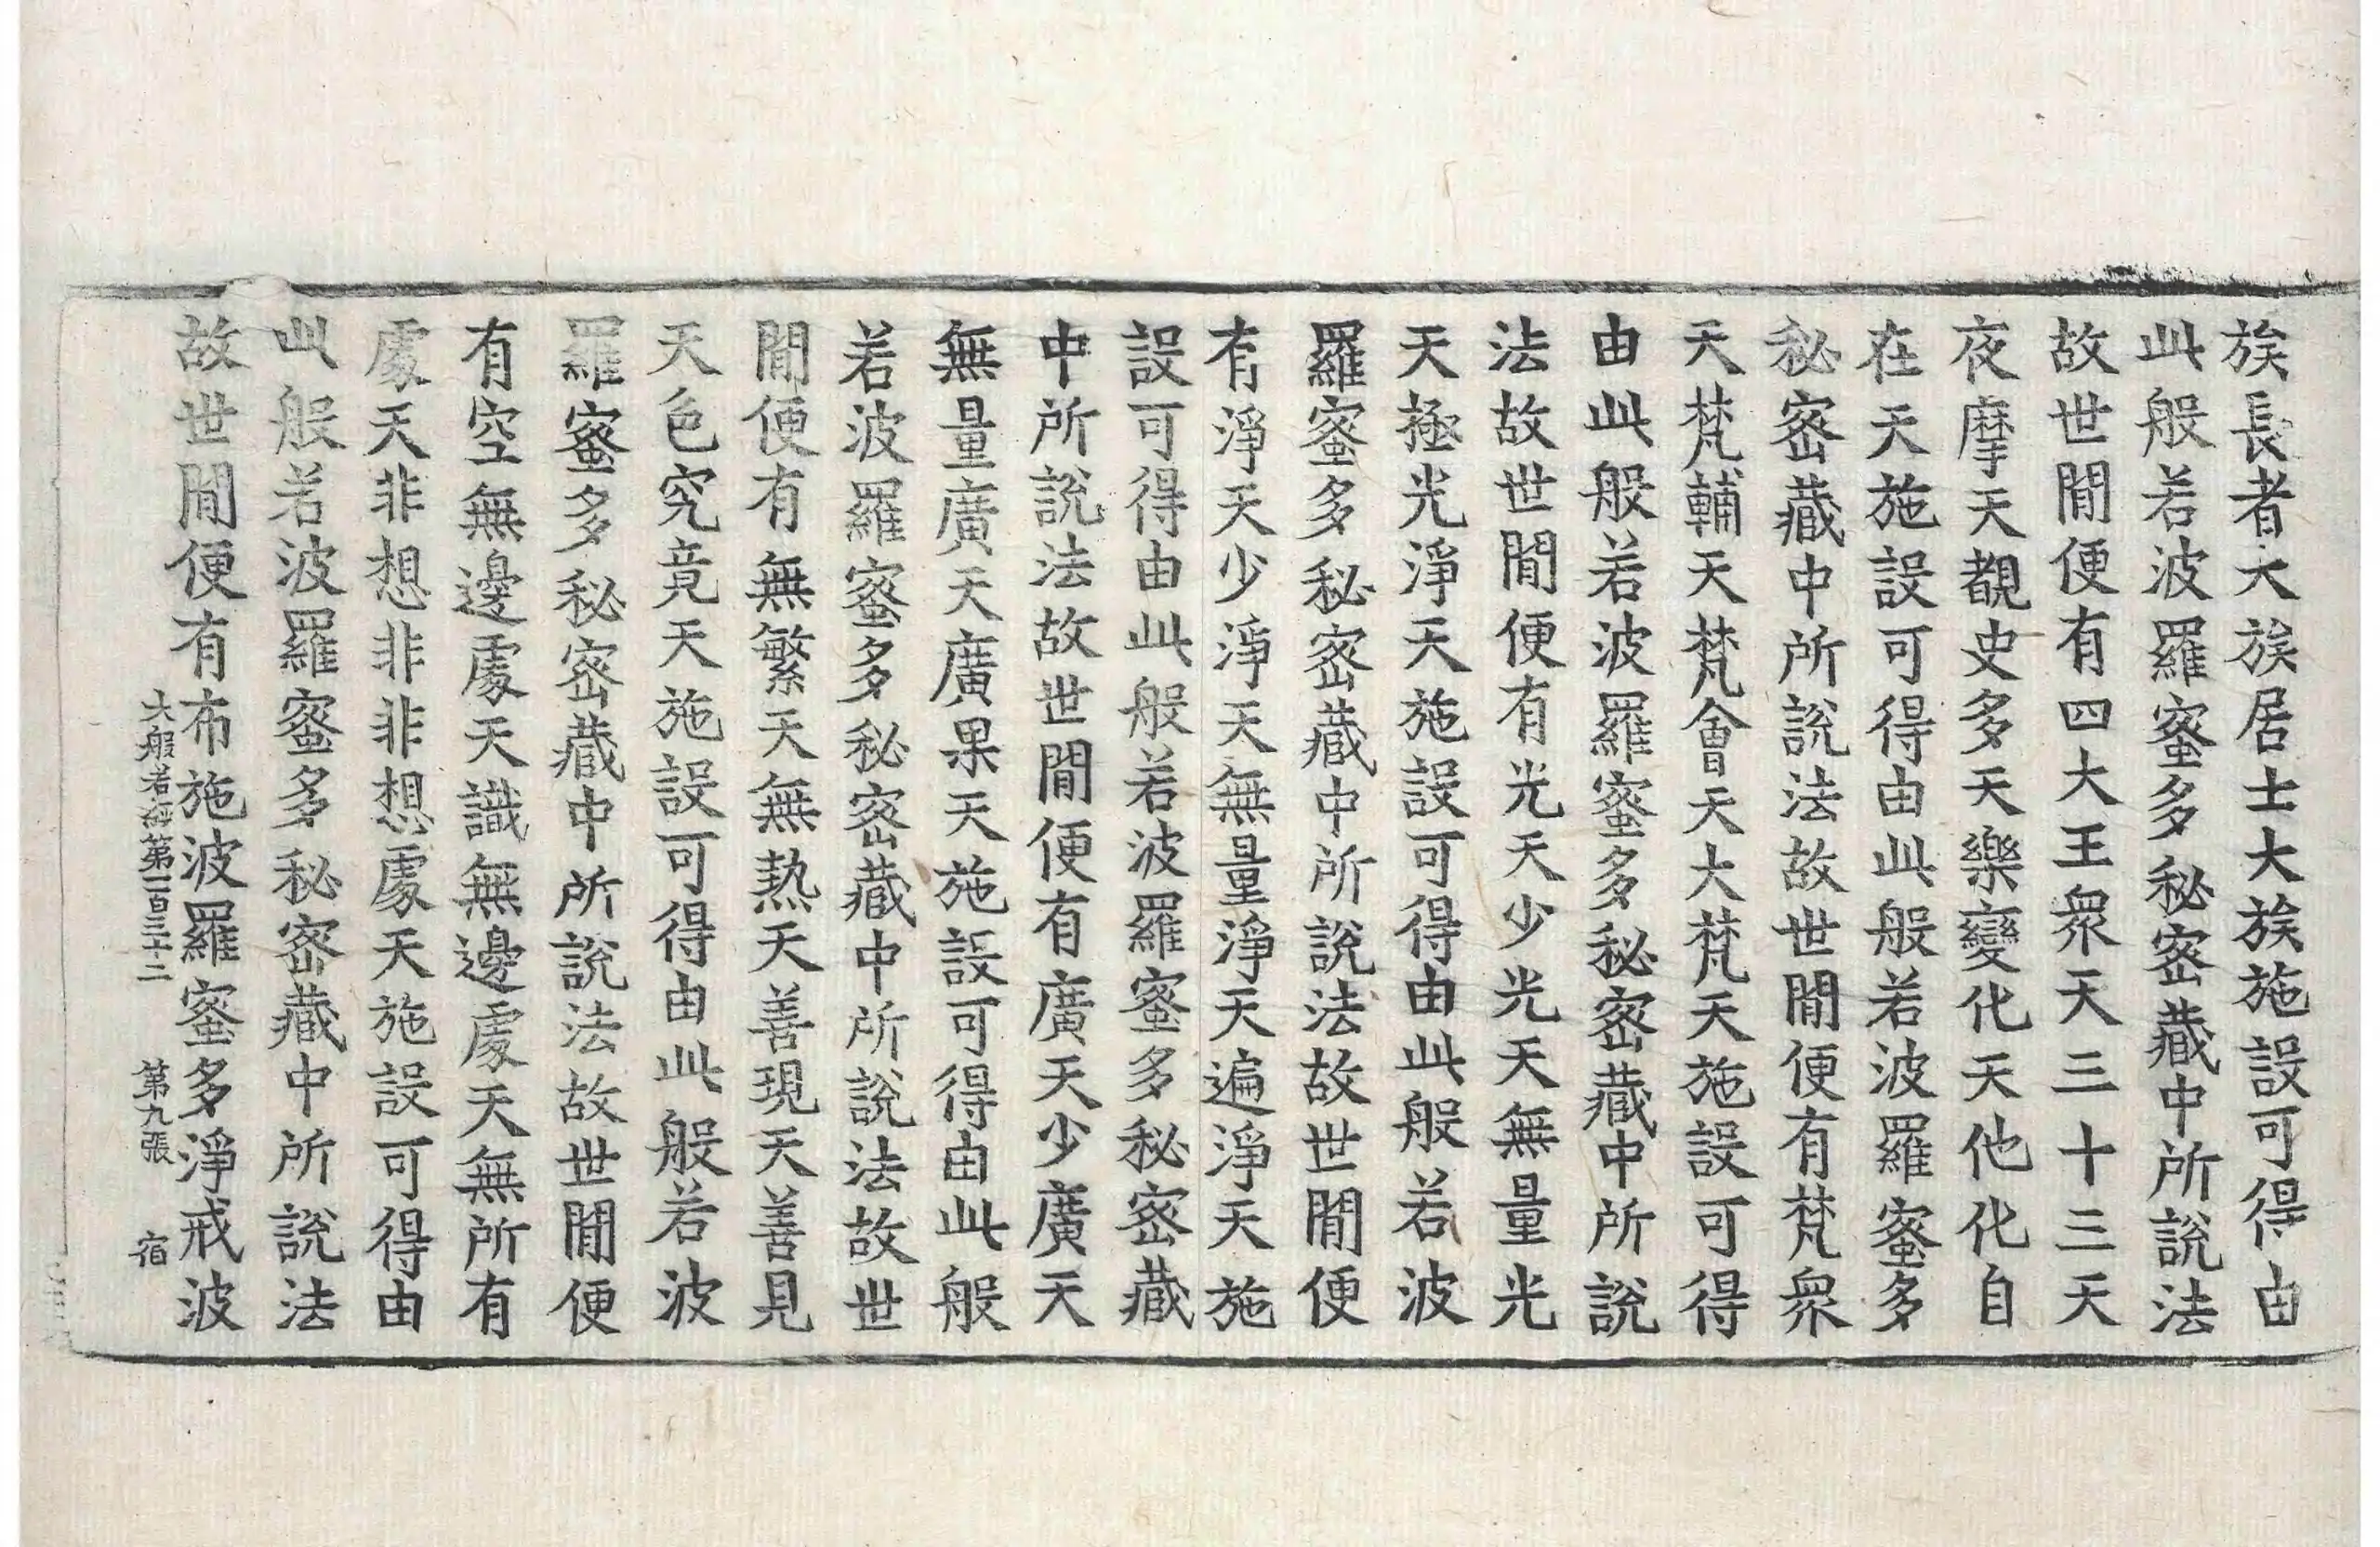 族長者大族居士大族施設可得由
此般若波羅蜜多秘密藏中所說法
故世閒便有四大王衆天三十三天
夜摩天覩史多天樂變化天他化自
在天施設可得由此般若波羅蜜多
秘密藏中所說法故世閒便有梵衆
天梵輔天梵會天大梵天施設可得
由此般若波羅蜜多秘密藏中所說
法故世閒便有光天少光天無量光
天極光淨天施設可得由此般若波
羅蜜多秘密藏中所說法故世閒便
有淨天少淨天無量淨天遍淨天施
設可得由此般若波羅蜜多秘密藏
中所說法故世閒便有廣天少廣天
無量廣天廣果天施設可得由此般
若波羅蜜多秘密藏中所說法故世
閒便有無繁天無熱天善現天善見
天色究竟天施設可得由此般若波
羅蜜多秘密藏中所說法故世閒便
有空無邊處天識無邊處天無所有
處天非想非非想處天施設可得由
此般若波羅蜜多秘密藏中所說法
故世閒便有布施波羅蜜多淨戒波
大般若經第一百三十二 第九張 宿